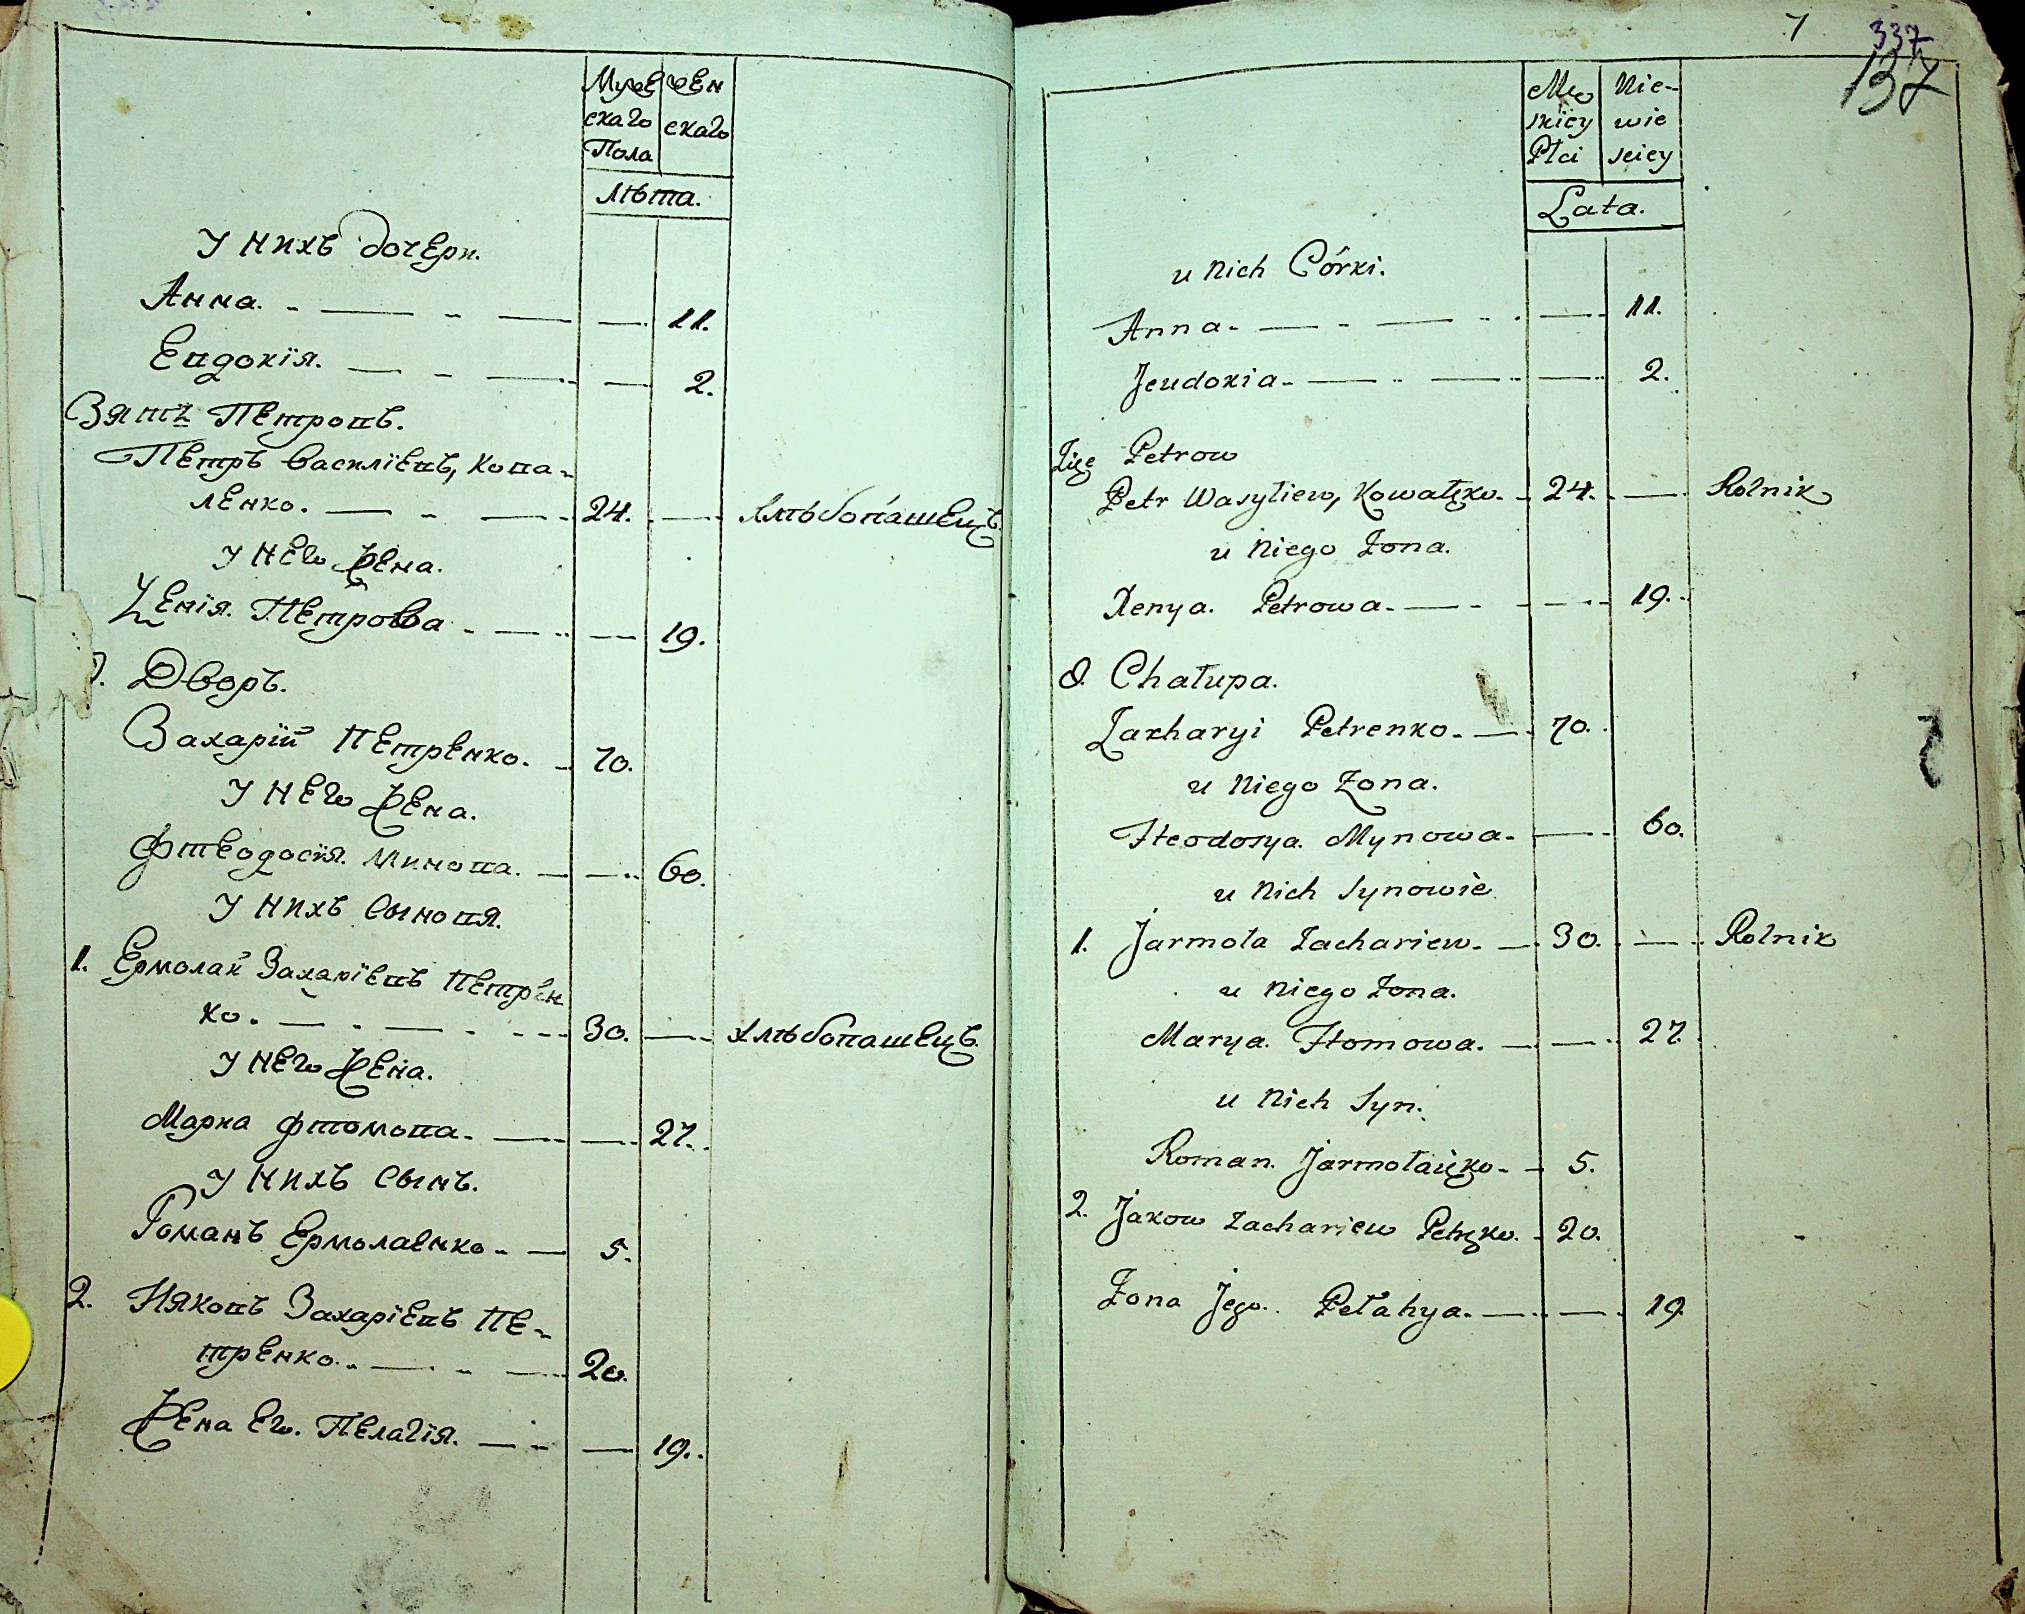 Муже
скаго
Пола
жен
скаго
Лѣта.
У нихъ дочери.
Анна. 11.
Евдокїя. 2.
Зять Петровъ.
Петръ Василїевъ, Кова-
ленко. 24. Хлѣбопашецъ.
У него жена.
Ѯенїя. Петрова 19.
Дворъ.
Захарїй Петренко. 70.
У него жена.
Фтеодосїя. Минова. 60.
У нихъ сыновя.
1. Ермолай Захарїевъ Петрен
ко. 30. Хлѣбопашецъ.
У него жена.
Мариа Фтомова. 27.
У нихъ сынъ.
Романъ Ермолаенко 5.
2.Ияковъ Захарїевъ Пе-
тренко. 20.
Жена его. Пелагїя. 19.
7
337
137
Męs
skiey
Płci
Nie-
wie
sciey
Lata.
u nich Córki.
Anna 11.
Jeudokia 2.
Zięc Petrow
Petr Wasyliew, Kowałęko. 24. Rolnik
u niego Żona.
Xenya. Petrowa 19.
8. Chałupa.
Zacharyi Petrenko. 70.
u niego Żona.
Fteodosya. Mynowa. 60.
u nich Synowie
1. Jarmoła Zachariew. 30. Rolnik
u niego Żona.
Marya. Ftomowa. 27.
u nich Syn.
Roman. Jarmołaięko 5.
2. Jakow Zachariew Petręko. 20.
Żona Jego. Pełahya. 19